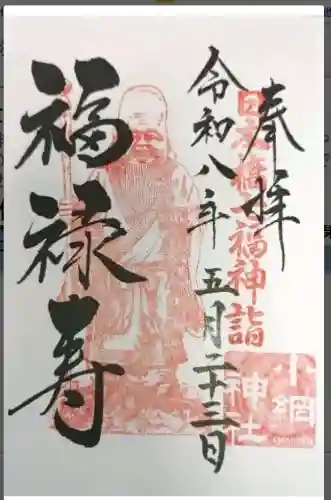 奉拝
日本橋七福神詣
令和八年五月二十三日
福禄寿
小網
神社